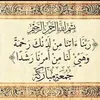 بسم الله الرحمن الرحيم
رَبَّنَا ءَاتِنَا مِن لَّدُنكَ رَحْمَةً
وَهَيِّئْ لَنَا مِنْ أَمْرِنَا رَشَدًا
جمعة مباركة